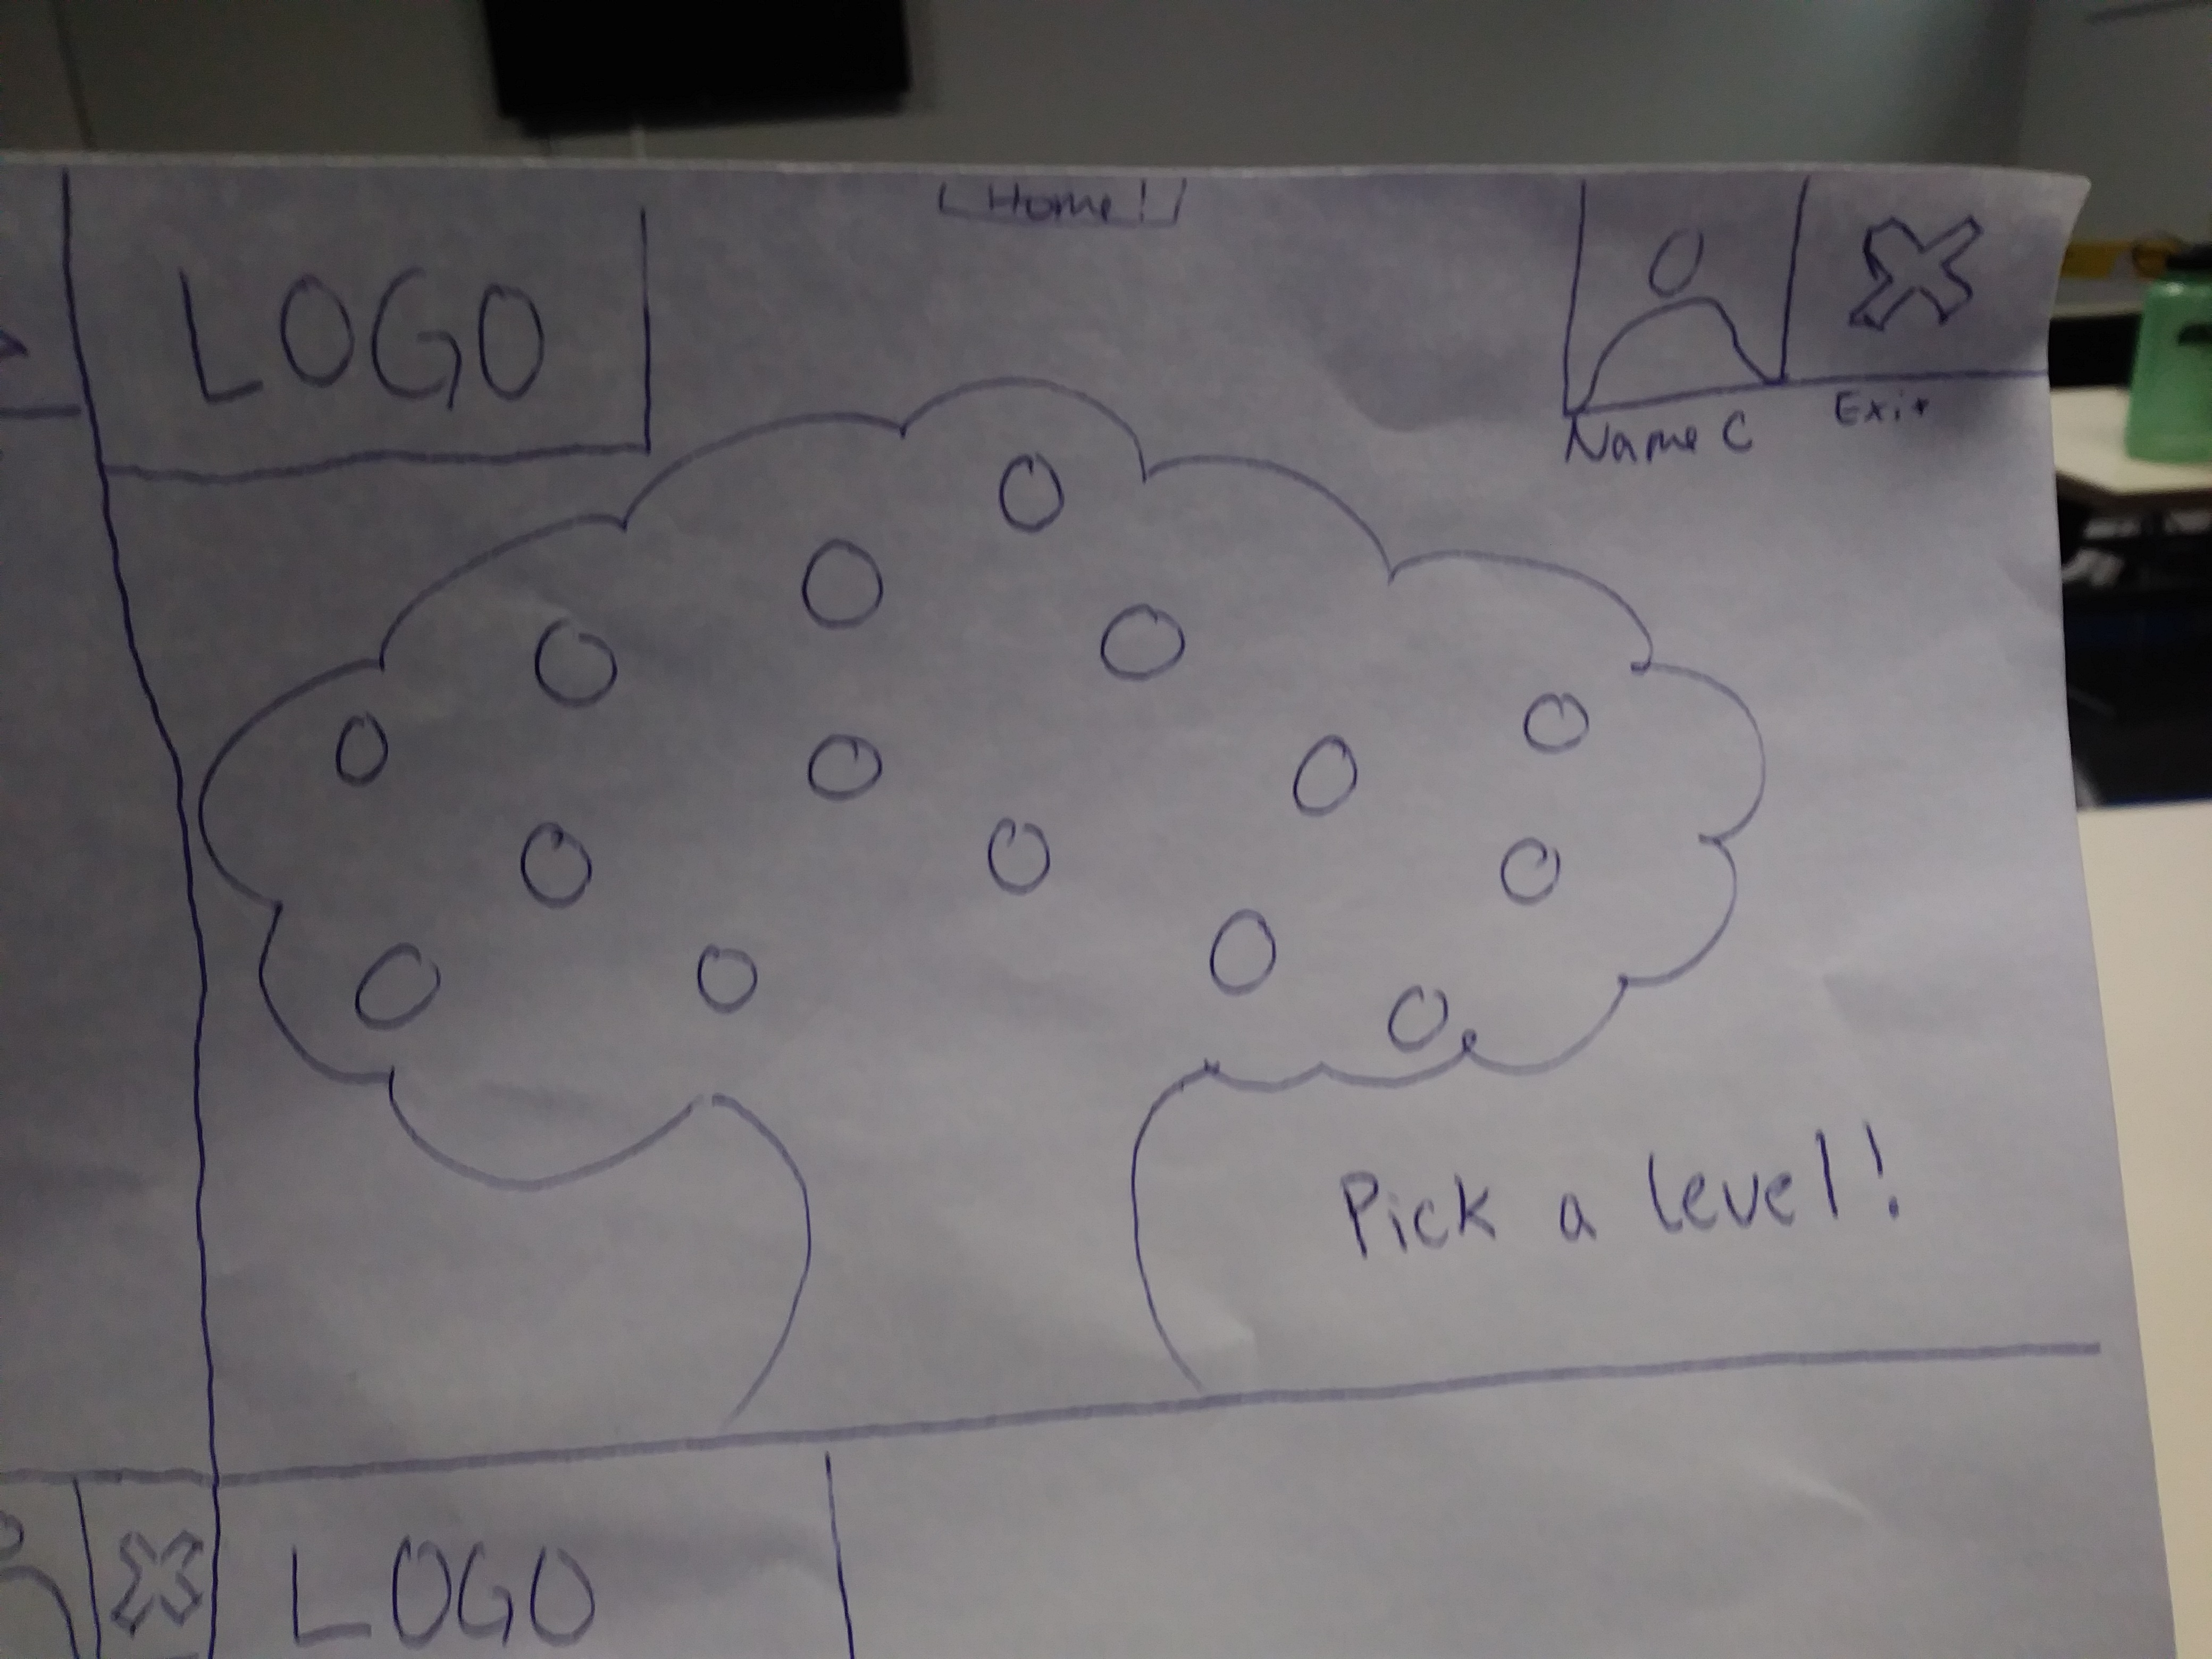 Home!
LOGO
Name C
Exit
Pick a level!
LOGO